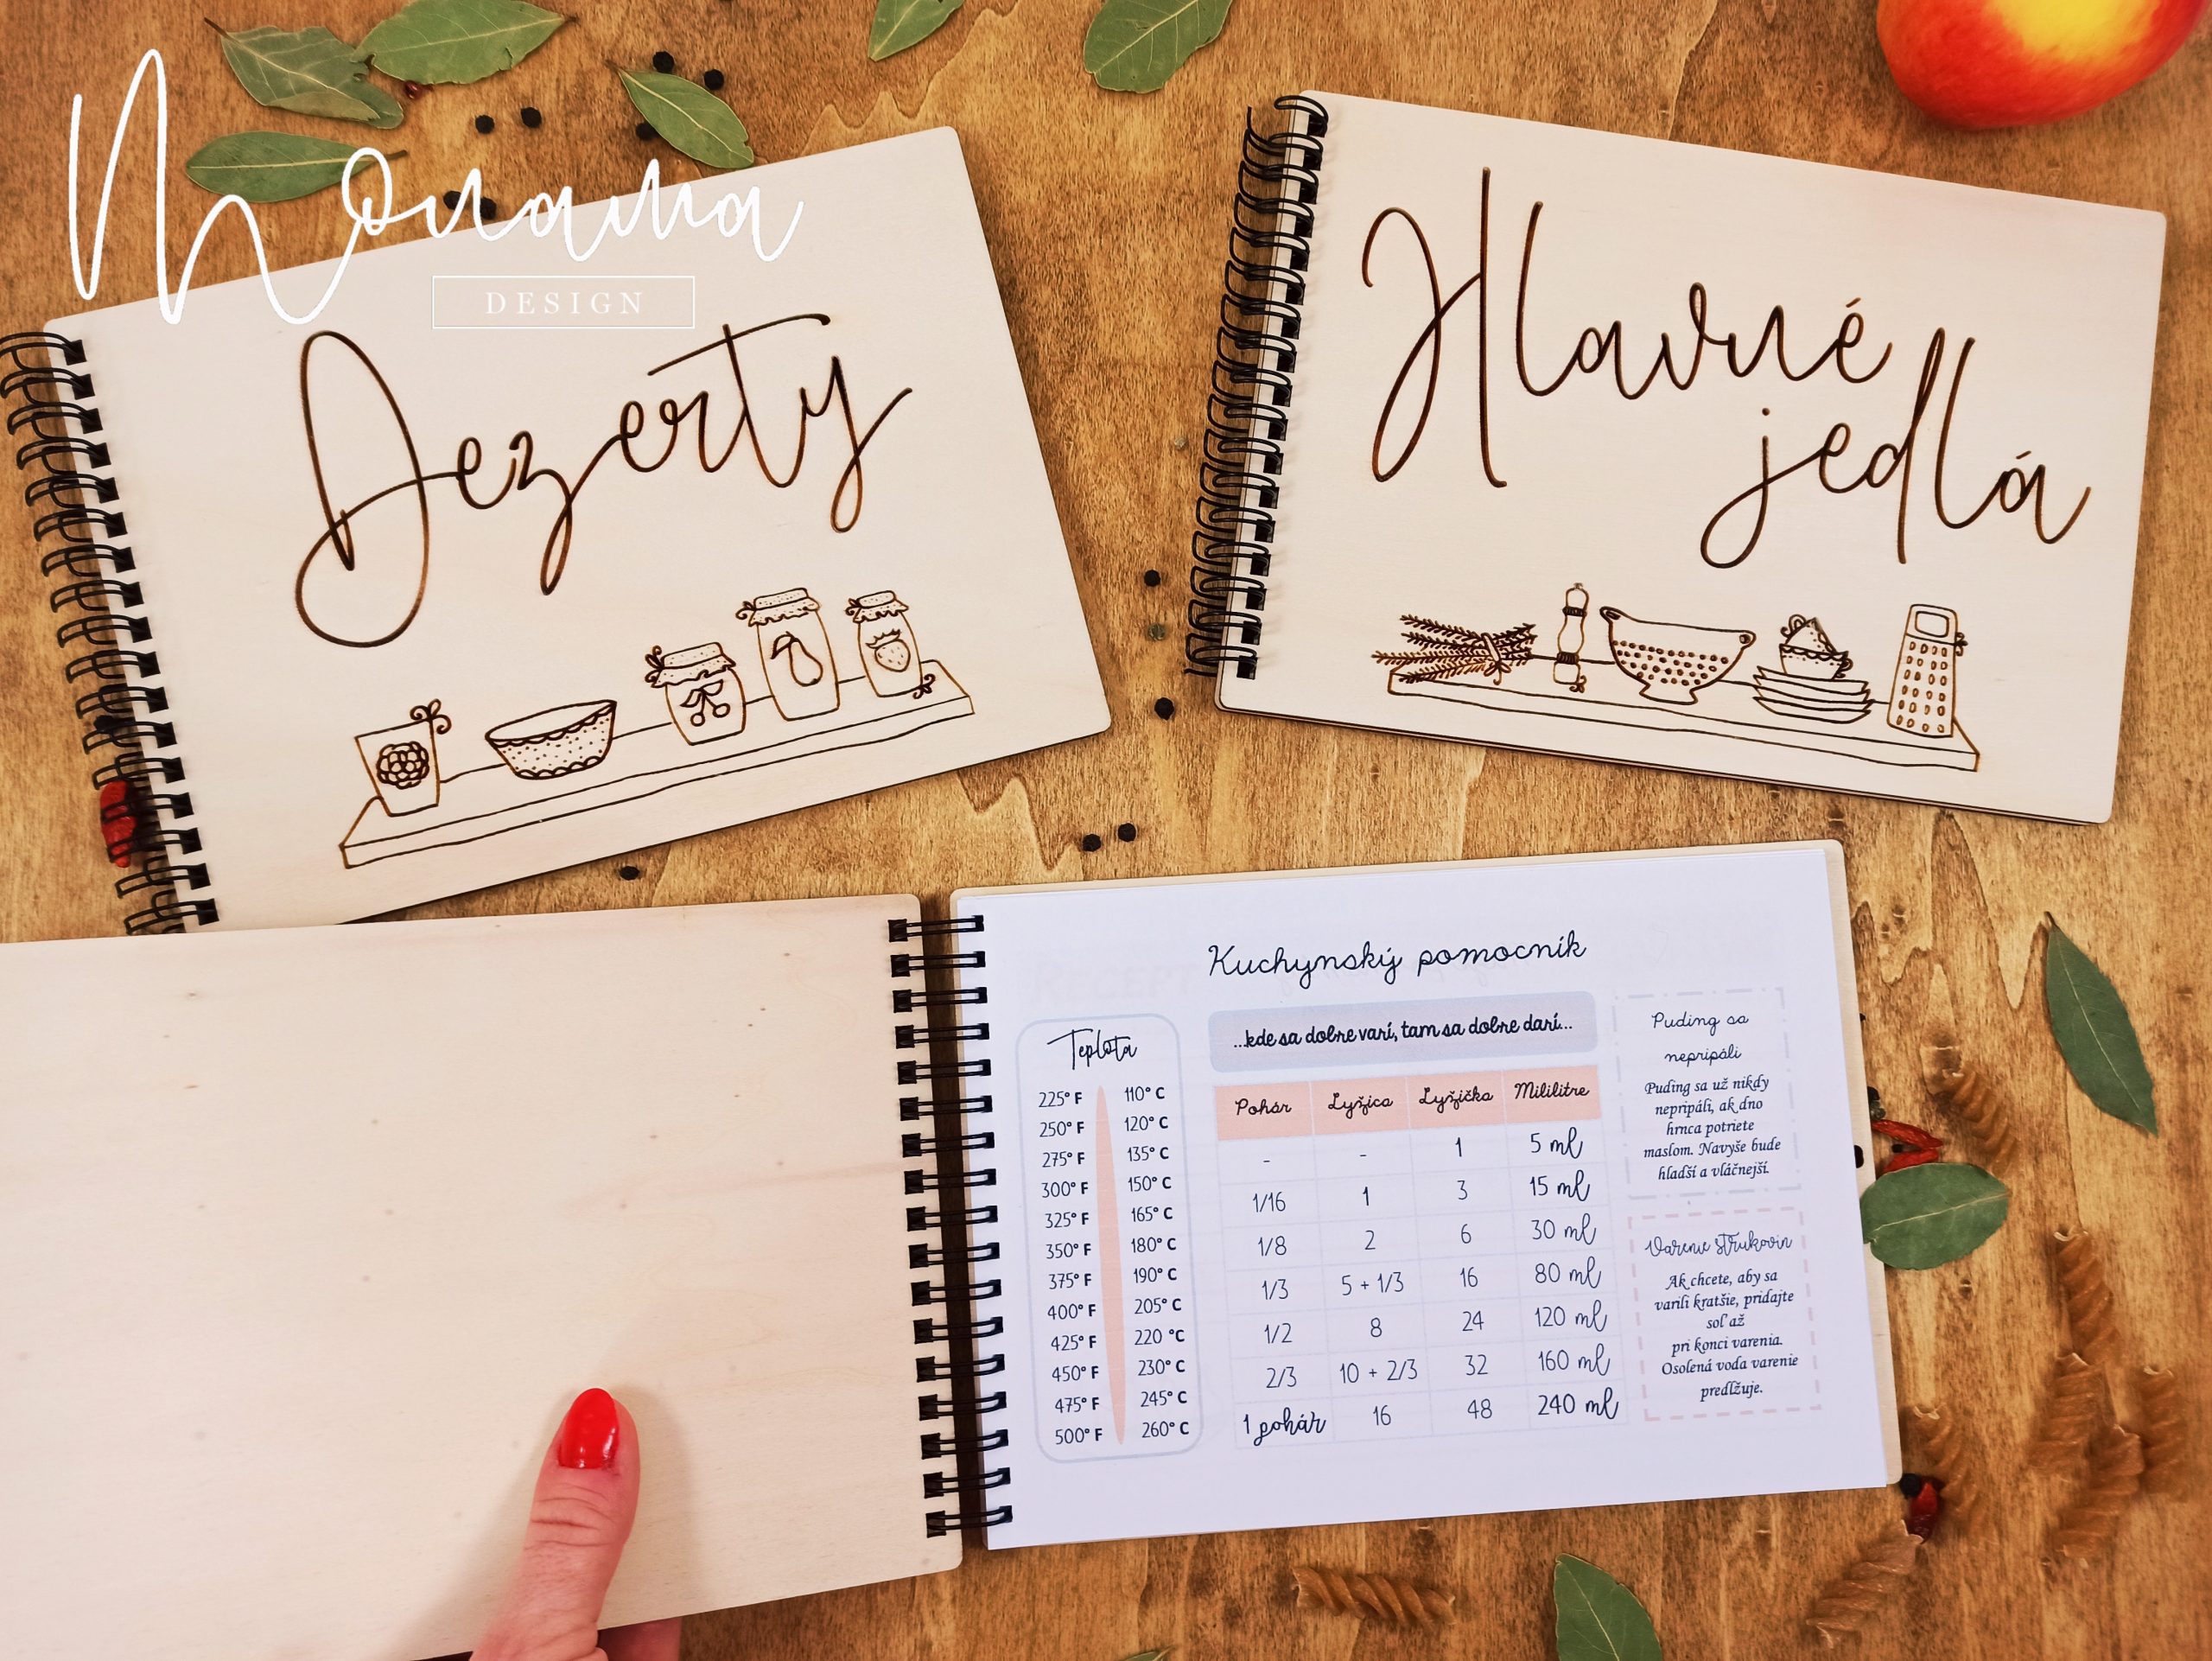 Monama
DESIGN
Dezerty
Hlavné
jedlá
Kuchynský pomocník
...kde sa dobre varí, tam sa dobre darí...
Teplota
225° F 110° C
250° F 120° C
275° F 135° C
300° F 150° C
325° F 165° C
350° F 180° C
375° F 190° C
400° F 205° C
425° F 220 °C
450° F 230° C
475° F 245° C
500° F 260° C
Pohár Lyžica Lyžička Mililitre
- - 1 5 ml
1/16 1 3 15 ml
1/8 2 6 30 ml
1/3 5 + 1/3 16 80 ml
1/2 8 24 120 ml
2/3 10 + 2/3 32 160 ml
1 pohár 16 48 240 ml
Puding sa
nepripáli
Puding sa už nikdy
nepripáli, ak dno
hrnca potriete
maslom. Navyše bude
hladší a vláčnejší.
Varenie strukovín
Ak chcete, aby sa
varili kratšie, pridajte
soľ až
pri konci varenia.
Osolená voda varenie
predlžuje.